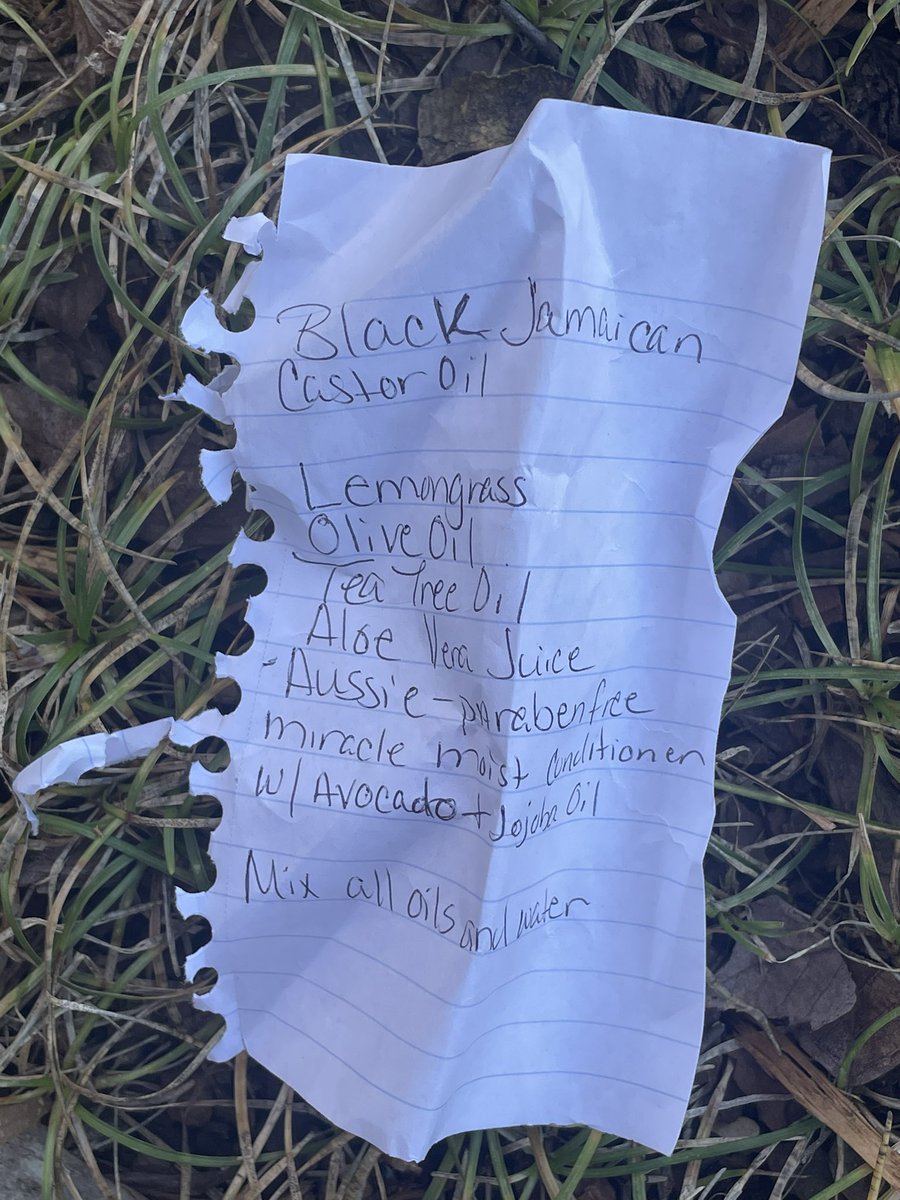 Black Jamaican
Castor Oil
Lemongrass
Olive Oil
Tea Tree Oil
Aloe Vera Juice
- Aussie - parabenfree
miracle moist Conditioner
W/ Avocado + Jojoba Oil
Mix all oils and water